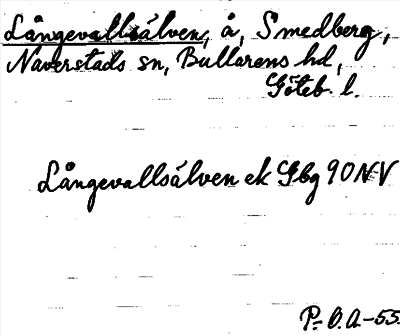 Långevallsälven, å, Smedberg,
Naverstads sn, Bullarens hd,
Göteb. l.
Långevallsälven ek Gbg 90 NV
P-O.A-55.